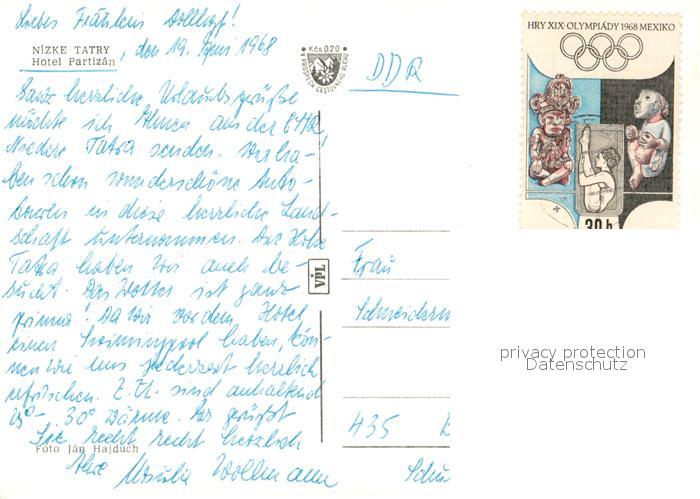 Liebes Fräulein Dollhopf!
NÍZKE TATRY
Hotel Partizán
, den 19. Juni 1968
Ganz herzliche Urlaubsgrüße
möchte ich Ihnen aus der ČSSR
Niedere Tatra senden. Wir ha-
ben schon wunderschöne Auto-
touren in diese herrliche Land-
schaft unternommen. Die Hohe
Tatra haben wir auch be-
sucht. Das Wetter ist ganz
prima! Da wir vor dem Hotel
einen Swimmingpool haben, kön-
nen wir uns jederzeit herrlich
erfrischen. Z. Zt. sind anhaltend
25° - 30° Wärme. Es grüßt
Sie recht recht herzlich
Foto Ján Hajduch
Ihre Ursula Wollmann
Kčs 0.20
VPL
DDR
Frau
Schneiderm
435
Schu
HRY XIX. OLYMPIÁDY 1968 MEXIKO
30 h
privacy protection
Datenschutz